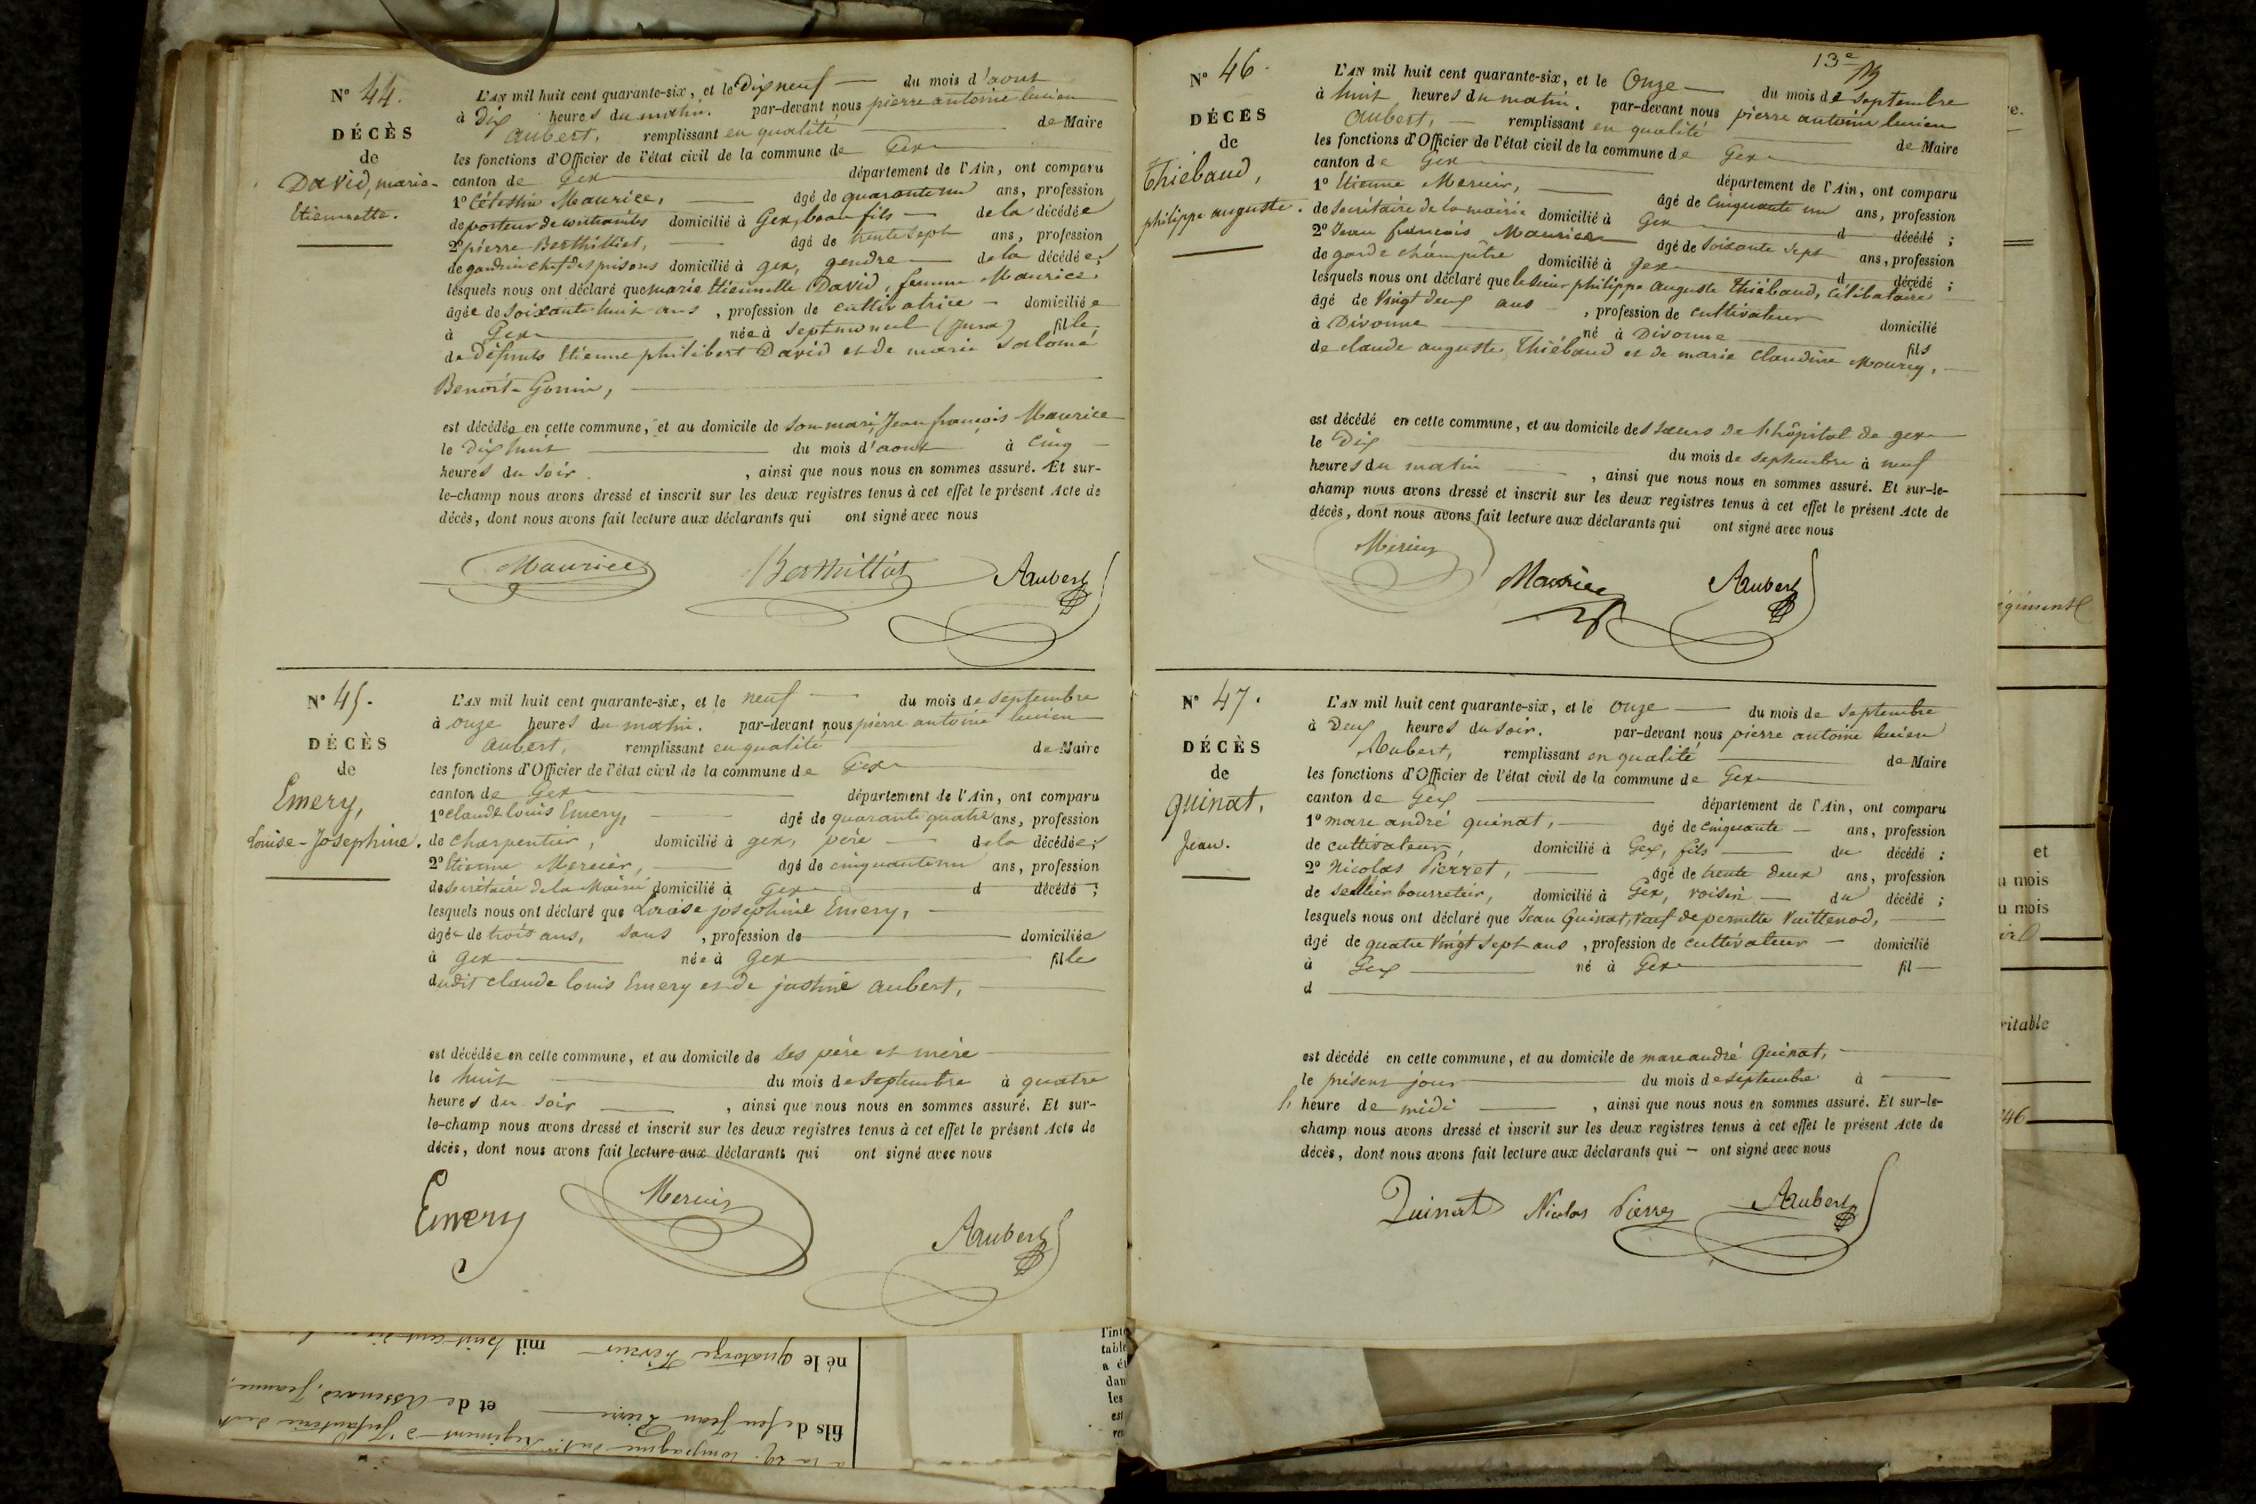 N° 44.
DÉCÈS
de
David, marie-
Etiennette.
L'AN mil huit cent quarante-six, et le Dix neuf du mois d'aout
à Dix heures du matin. par-devant nous pierre antoine lucien
aubert, remplissant en qualité de Maire
les fonctions d'Officier de l'état civil de la commune de Gex
canton de Gex département de l'Ain, ont comparu
1° Célestin Maurice, âgé de quarante un ans, profession
de porteur de contraintes domicilié à Gex, beau fils de la décédée
2° pierre Berthilliet, âgé de trente sept ans, profession
de gardien chef des prisons domicilié à gex, gendre de la décédée;
lesquels nous ont déclaré que marie Etiennette David, femme Maurice
âgée de soixante huit ans, profession de cultivatrice domiciliée
à Gex née à septmoncel (Jura) fille
de Défunts Etienne philibert David et de marie Salomé
Benoit-Gonin,
est décédée en cette commune, et au domicile de son mari Jean françois Maurice
le Dix huit du mois d'aout à cinq
heures du soir, ainsi que nous nous en sommes assuré. Et sur-
le-champ nous avons dressé et inscrit sur les deux registres tenus à cet effet le présent Acte de
décès, dont nous avons fait lecture aux déclarants qui ont signé avec nous
Maurice Berthilliet Aubert
N° 45.
DÉCÈS
de
Emery,
Louise-Josephine.
L'AN mil huit cent quarante-six, et le neuf du mois de septembre
à onze heures du matin. par-devant nous pierre antoine lucien
aubert, remplissant en qualité de Maire
les fonctions d'Officier de l'état civil de la commune de Gex
canton de Gex département de l'Ain, ont comparu
1° claude louis Emery, âgé de quarante quatre ans, profession
de charpentier, domicilié à gex, père de la décédée;
2° Etienne Mercier, âgé de cinquante un ans, profession
de secrétaire de la Mairie domicilié à Gex d décédé;
lesquels nous ont déclaré que Louise josephine Emery,
âgée de trois ans, sans, profession de domiciliée
à gex née à Gex fille
dudit claude louis Emery et de justine aubert,
est décédée en cette commune, et au domicile de ses père et mère
le huit du mois de septembre à quatre
heures du soir, ainsi que nous nous en sommes assuré. Et sur-
le-champ nous avons dressé et inscrit sur les deux registres tenus à cet effet le présent Acte de
décès, dont nous avons fait lecture aux déclarants qui ont signé avec nous
Emery Mercier Aubert
né le quatorze Février mil huit cent
fils de feu Jean Pierre et de Assenard, Jeanne,
13e
N° 46.
DÉCÈS
de
Thiébaud,
philippe auguste.
L'AN mil huit cent quarante-six, et le Onze du mois de septembre
à huit heures du matin. par-devant nous pierre antoine lucien
aubert, remplissant en qualité de Maire
les fonctions d'Officier de l'état civil de la commune de Gex
canton de Gex département de l'Ain, ont comparu
1° Etienne Mercier, âgé de cinquante un ans, profession
de secrétaire de la mairie domicilié à Gex d décédé;
2° Jean françois Maurice âgé de soixante sept ans, profession
de garde champêtre domicilié à gex d décédé;
lesquels nous ont déclaré que le sieur philippe auguste Thiébaud, célibataire
âgé de Vingt deux ans, profession de cultivateur domicilié
à Divonne né à Divonne fils
de claude auguste Thiébaud et de marie claudine Mourey,
est décédé en cette commune, et au domicile des soeurs de l'hôpital de gex
le Dix du mois de septembre à neuf
heures du matin, ainsi que nous nous en sommes assuré. Et sur-le-
champ nous avons dressé et inscrit sur les deux registres tenus à cet effet le présent Acte de
décès, dont nous avons fait lecture aux déclarants qui ont signé avec nous
Mercier Maurice Aubert
N° 47.
DÉCÈS
de
quinat,
Jean.
L'AN mil huit cent quarante-six, et le onze du mois de septembre
à Deux heures du soir. par-devant nous pierre antoine lucien
Aubert, remplissant en qualité de Maire
les fonctions d'Officier de l'état civil de la commune de Gex
canton de Gex département de l'Ain, ont comparu
1° marc andré quinat, âgé de cinquante ans, profession
de cultivateur, domicilié à Gex, fils du décédé;
2° Nicolas Pierret, âgé de trente deux ans, profession
de sellier bourrelier, domicilié à Gex, voisin du décédé;
lesquels nous ont déclaré que Jean Quinat, veuf de pernette Vuittenod,
âgé de quatre Vingt sept ans, profession de cultivateur domicilié
à Gex né à Gex fil
d
est décédé en cette commune, et au domicile de marc andré Quinat,
le présent jour du mois de septembre à
heure de midi, ainsi que nous nous en sommes assuré. Et sur-le-
champ nous avons dressé et inscrit sur les deux registres tenus à cet effet le présent Acte de
décès, dont nous avons fait lecture aux déclarants qui ont signé avec nous
Quinat Nicolas Pierret Aubert